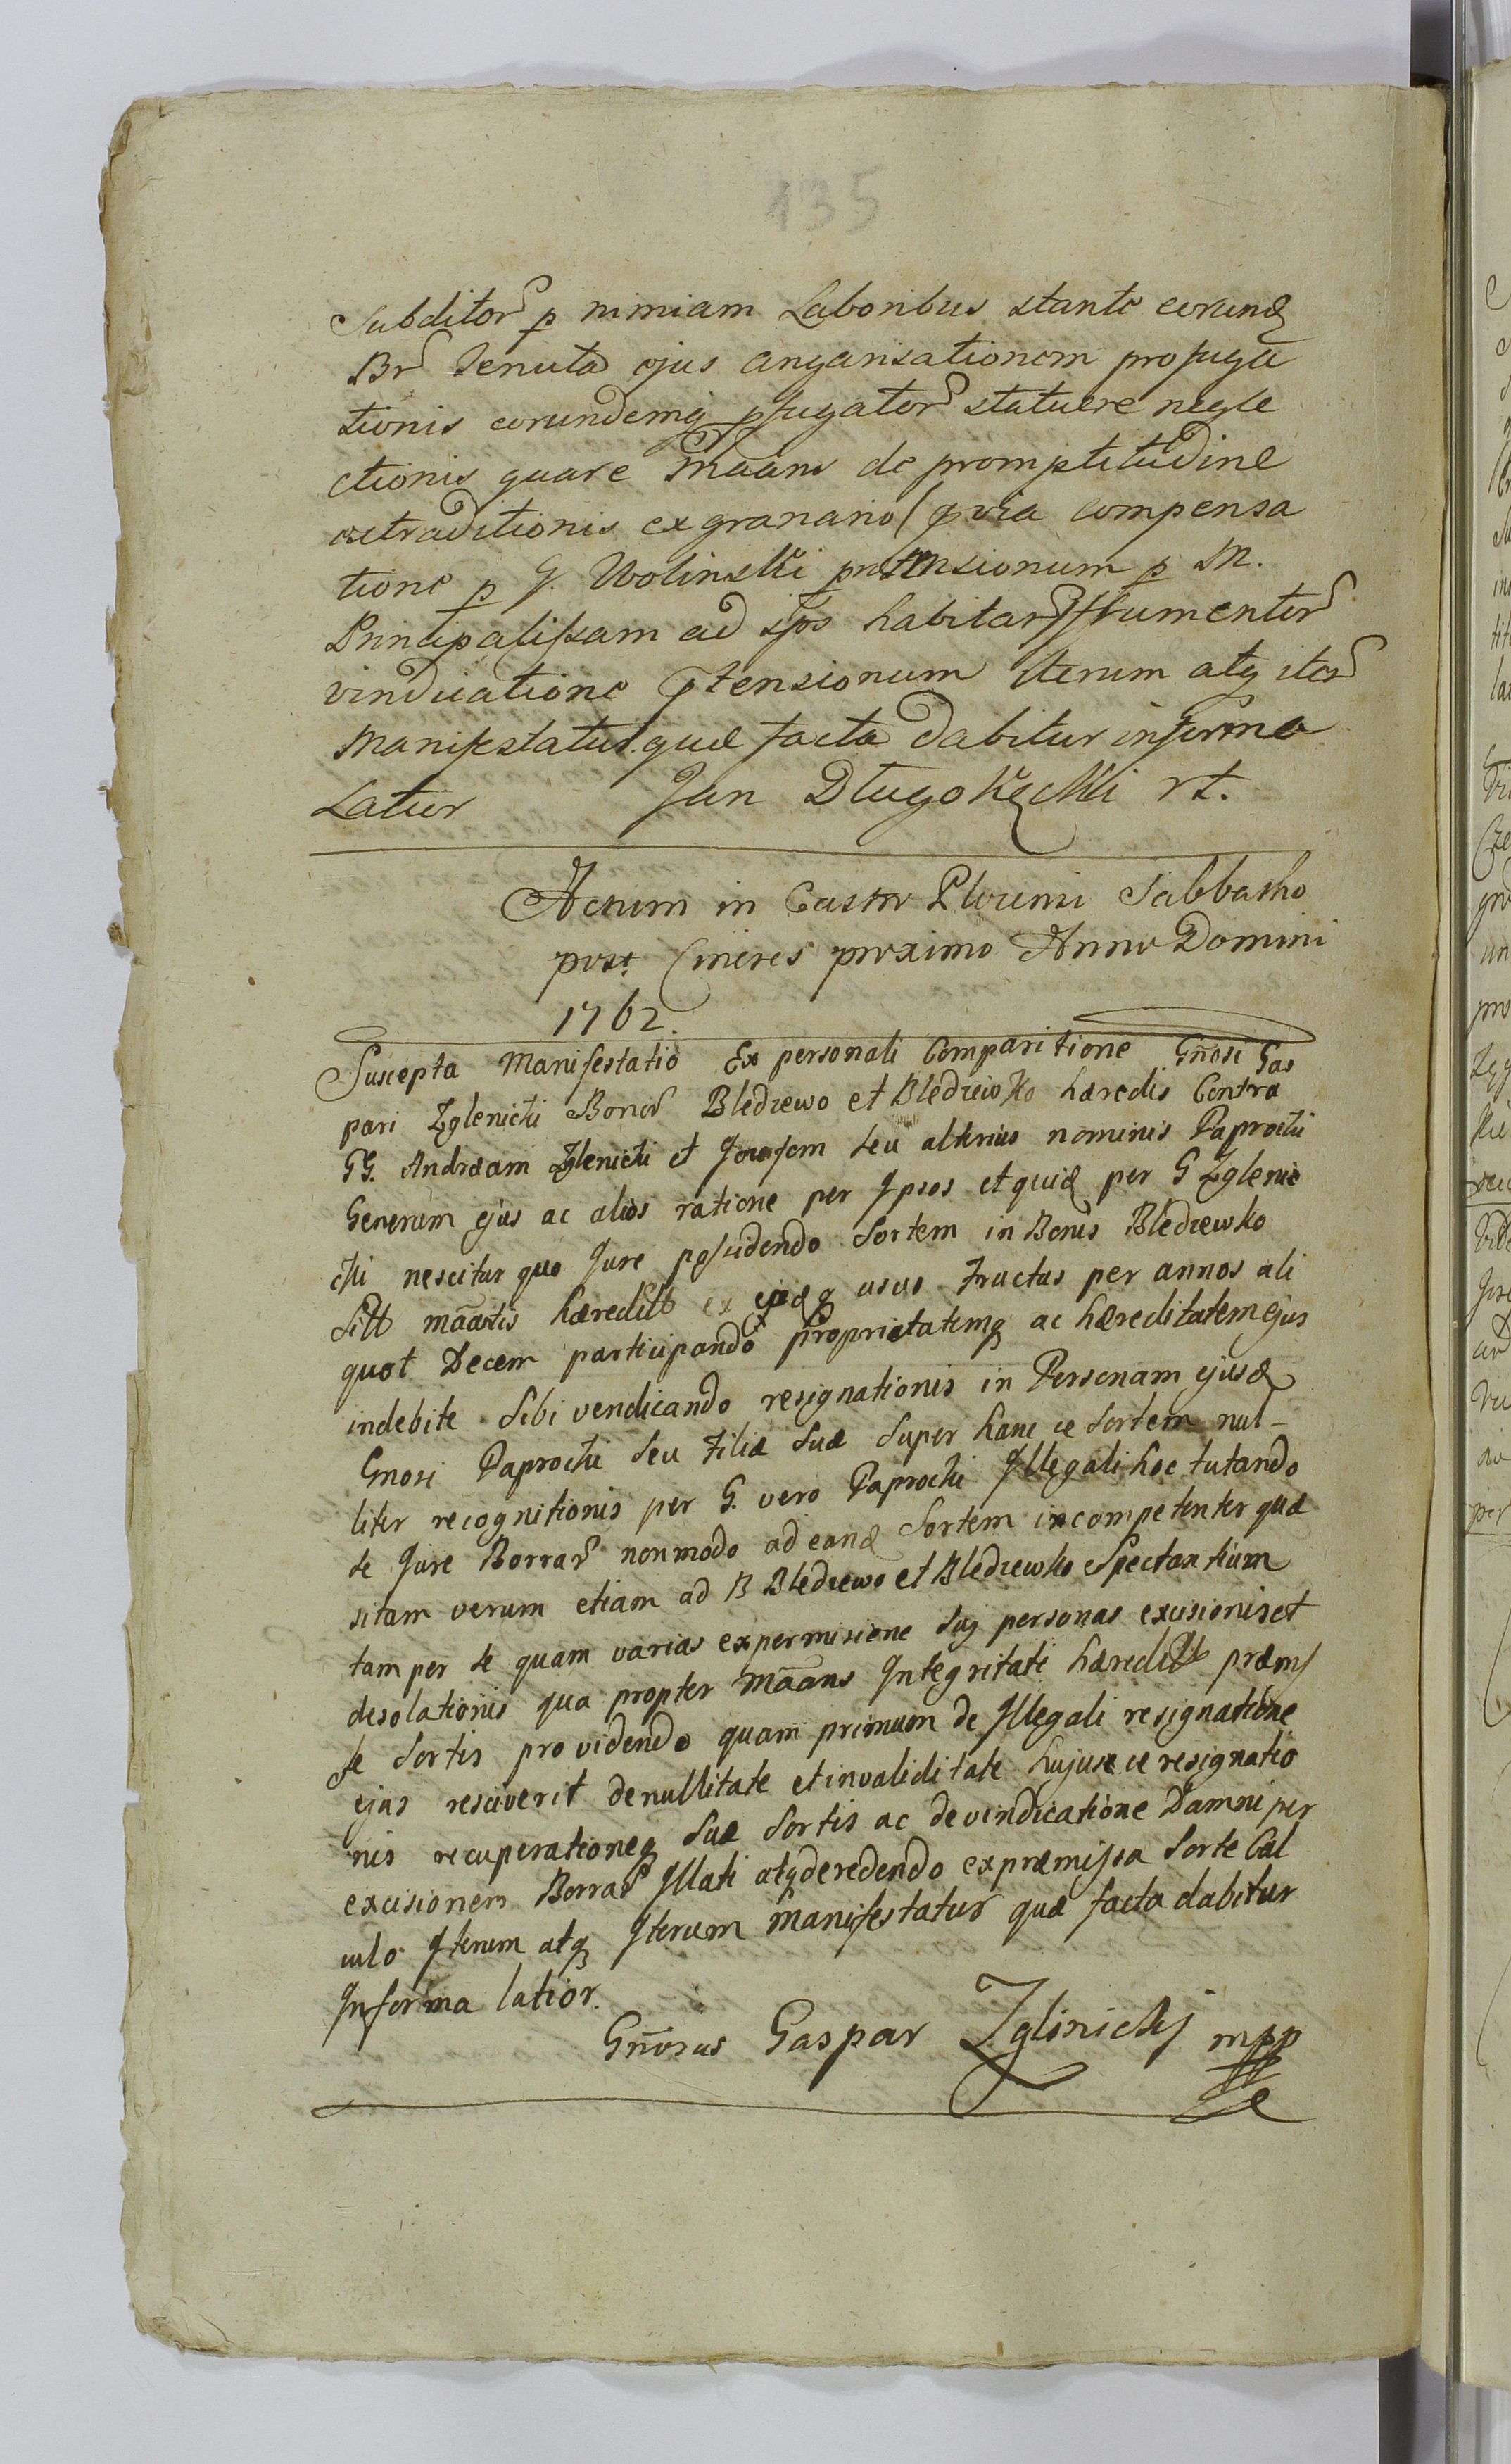 135
Subditor p nimiam Laboribus stante eorund
Br tenuta ejus angarisationem profuga
tionis eorundemq pfugator statuere negle
ctionis quare maans de promptitudine
extraditionis ex granario p via compensa
tione p G. Wolinski prtensionum p M.
Principalissam ad ipos habitar frumentor
vindicatione ptensionum Iterum atq iter
Manifestatur. quæ facta dabitur in forma
Latior Jan Długokęcki rt.
Actum in Castro Plocensi Sabbatho
post Cineres proximo Anno Domini
1762.
Suscepta Manifestatio Ex personali Comparitione Gnosi Gas
pari Zglenicki Bonor Bledzewo et Bledzewko hæredis Contra
GG. Andream Zglenicki et Josefom seu alterius nominis Paprocki
Generum ejus ac alios ratione per Ipsos et quid per G Zglenic
cki nescitur quo Jure possidendo Sortem in Bonis Bledzewko
Sitt maantis hæreditt ex ejusdq usus Fructus per annos ali
quot Decem participando proprietatemq ac hæreditatem ejus
indebite Sibi vendicando resignationis in Personam ejusd
Gnosi Paprocki Seu Filiæ Suæ Super hanc ce Sortem nul-
liter recognitionis per G. vero Paprocki Illegali hoc tutando
se Jure Borrar non modo ad eand Sortem incompetenter quæ
sitam verum etiam ad B Bledzewo et Bledzewko Spectantium
tam per se quam varias ex permisione Sui personas excisionis et
desolationis qua propter maans Integritati hæreditt præmis
sæ Sortis providendo quam primum de Illegali resignatione
ejus resciverit de nullitate et invaliditate hujusce resignatio
nis recuperationeq Suæ Sortis ac de vindicatione Damni per
excisionem Borrar Illati atq de redendo ex præmissa Sorte Cal
culo Iterum atq Iterum manifestatur quæ facta dabitur
In forma latior.
Gnosus Gaspar Zglinicki mpp